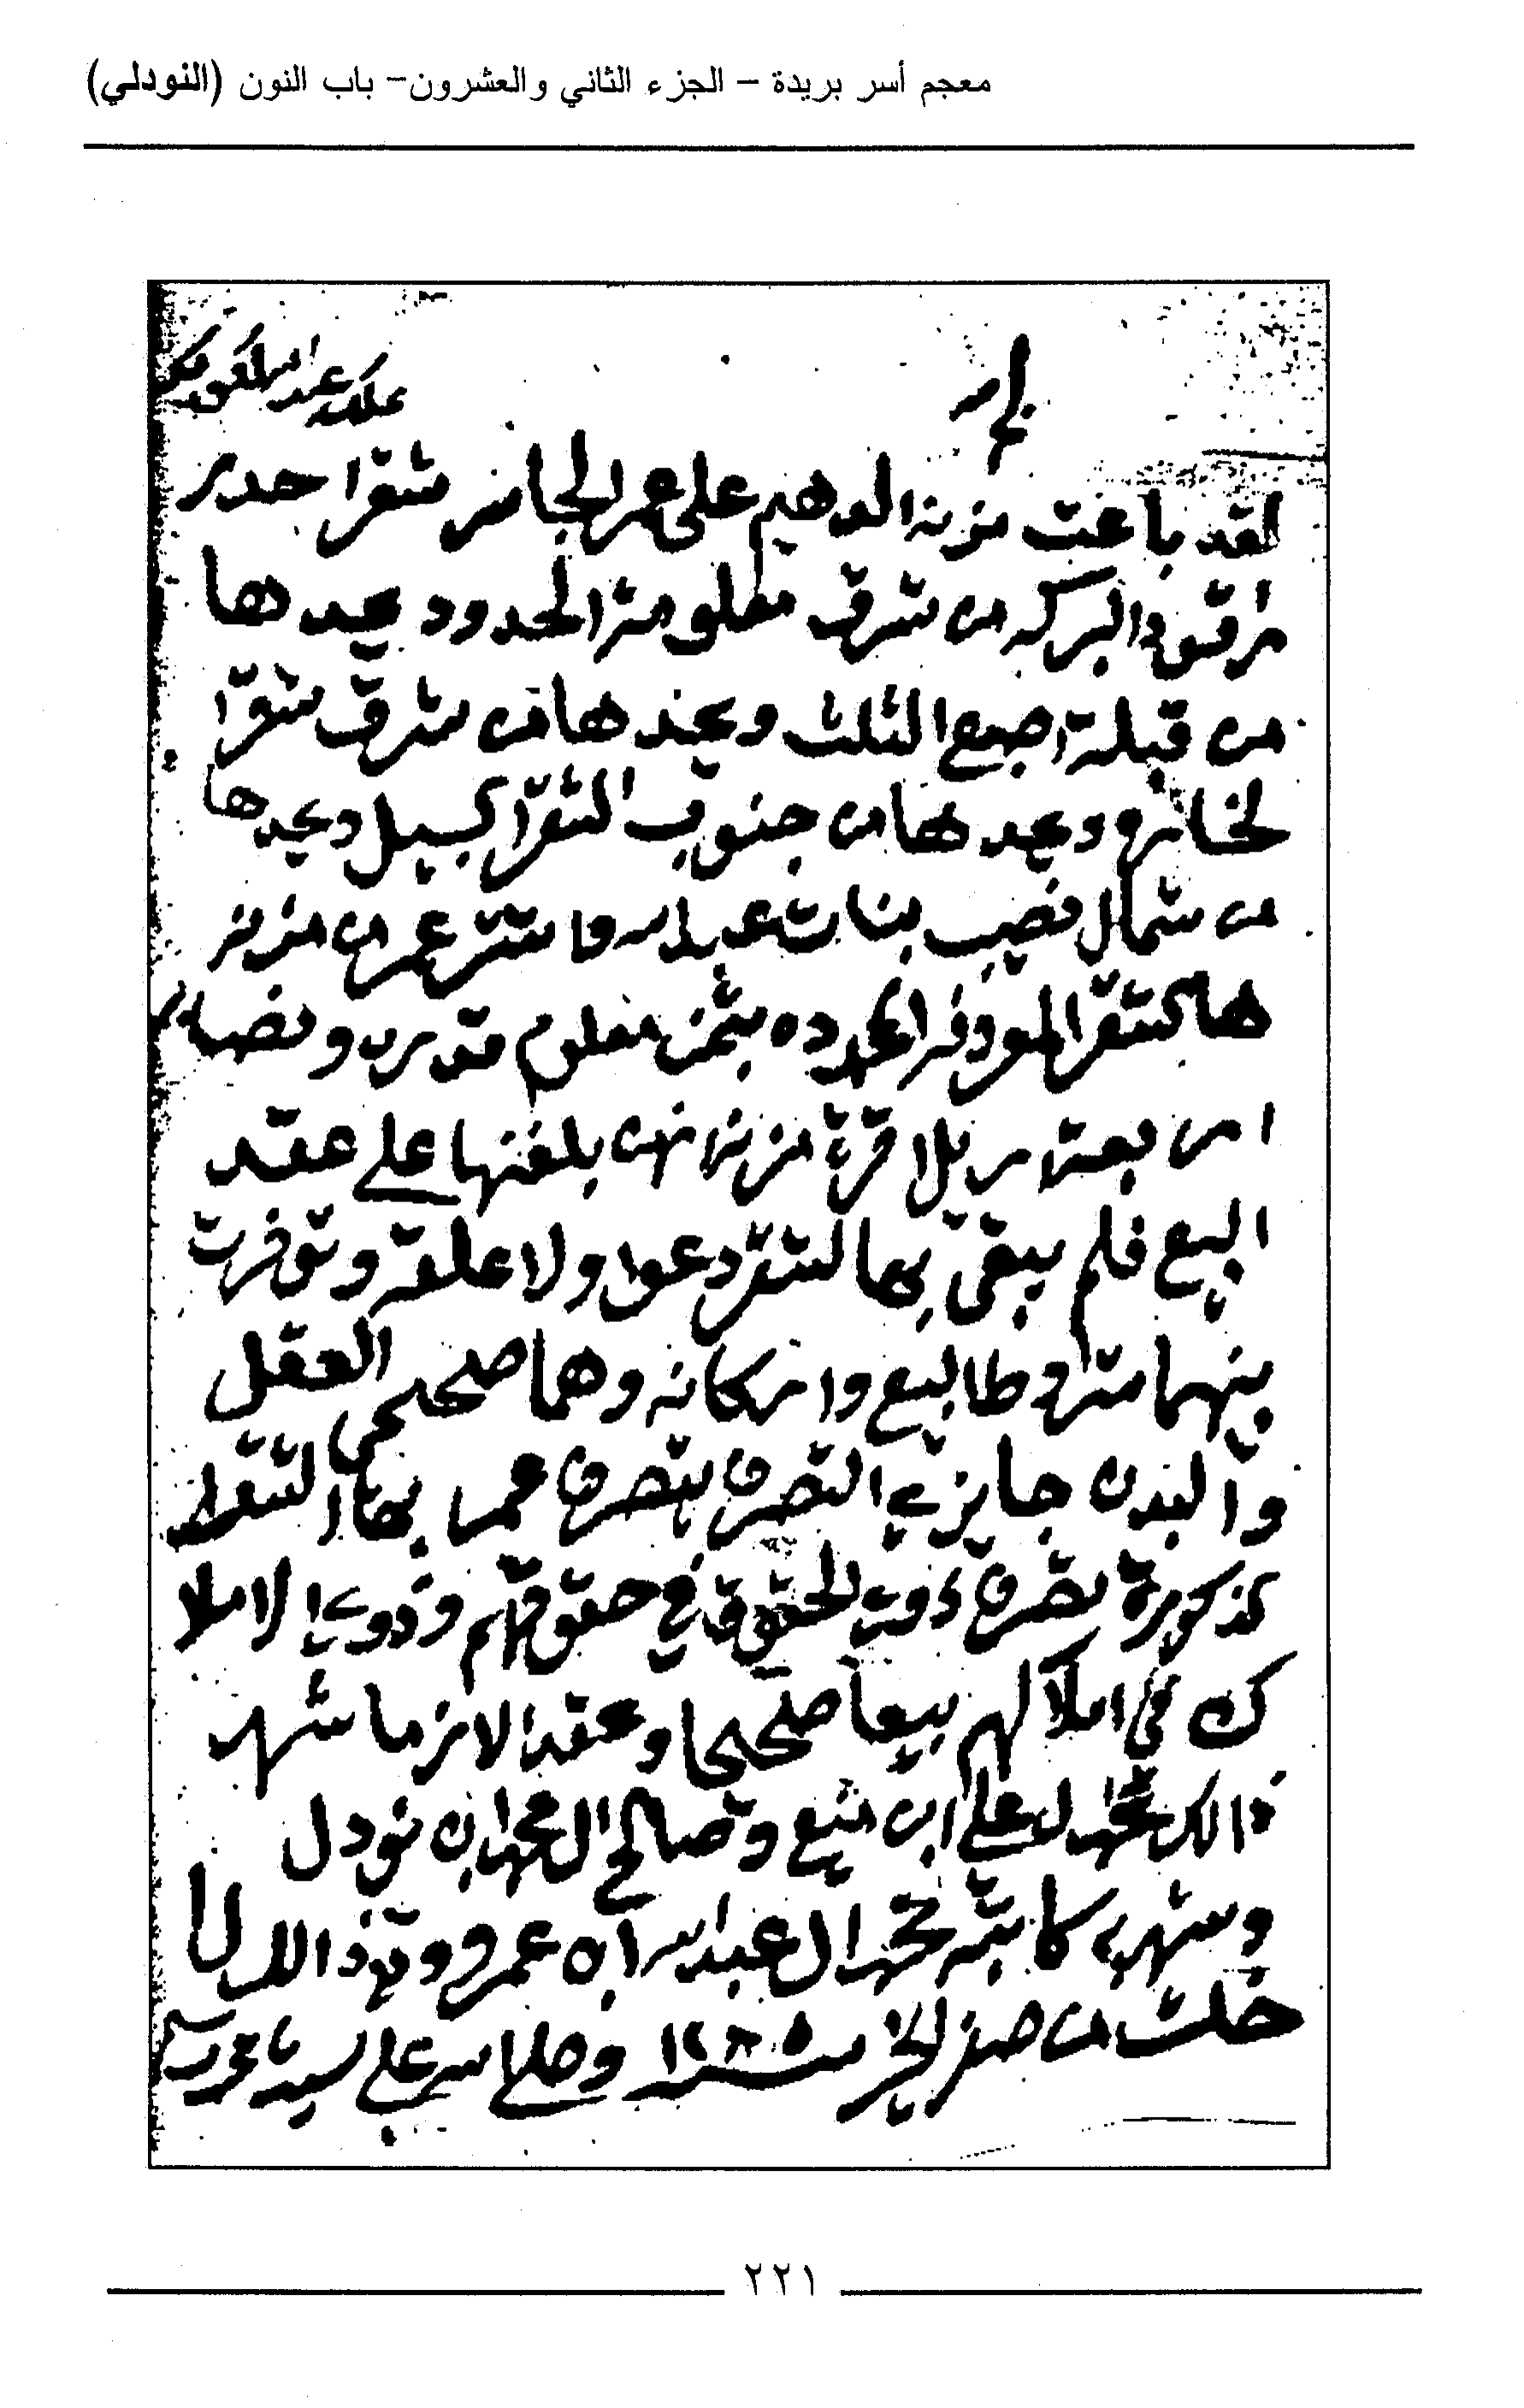 معجم أسر بريدة – الجزء الثاني والعشرون– باب النون (النودلي)
لقد باعت مزنه الدهيم على عمر الجاسر شقرا حدر
البركه من شرق معلومة الحدود يحدها
من قبلة اصبع الثلث ويحدها من شرق شقرا
ويحدها من جنوب الشقرا لسبيل ويحدها
من شمال نصيب بنات عبدالله واشترى عمر من مزنه
هالشقرا المحدده بثمن معلوم قدره ونصابه
اربعة اريل اقرة مزنه انهن بلغنها على عقد
البيع فلم يبقى بهالشقر دعوا ولا علقه وتوفرت
بينهما شروط البيع واركانه وهما صحيحي العقل
والبدن جايزي التصرف يتصرف عمر بهاالشقرا
لمذكورة تصرف ذوي الحقوق في حقوقهم وذوي الاملا
ك في املاكهم بيعا صحيحا وعقدا لازما شهد
ذالك محمد العلي ابن منيع وصالح المحمد ابن نودل
وشهد به كاتبه محمد ال عبدالله ابن عمرو
خلت من صفر الخير سنة ١٢٨٥ وصلى الله على سيدنا محمد
٢٢١